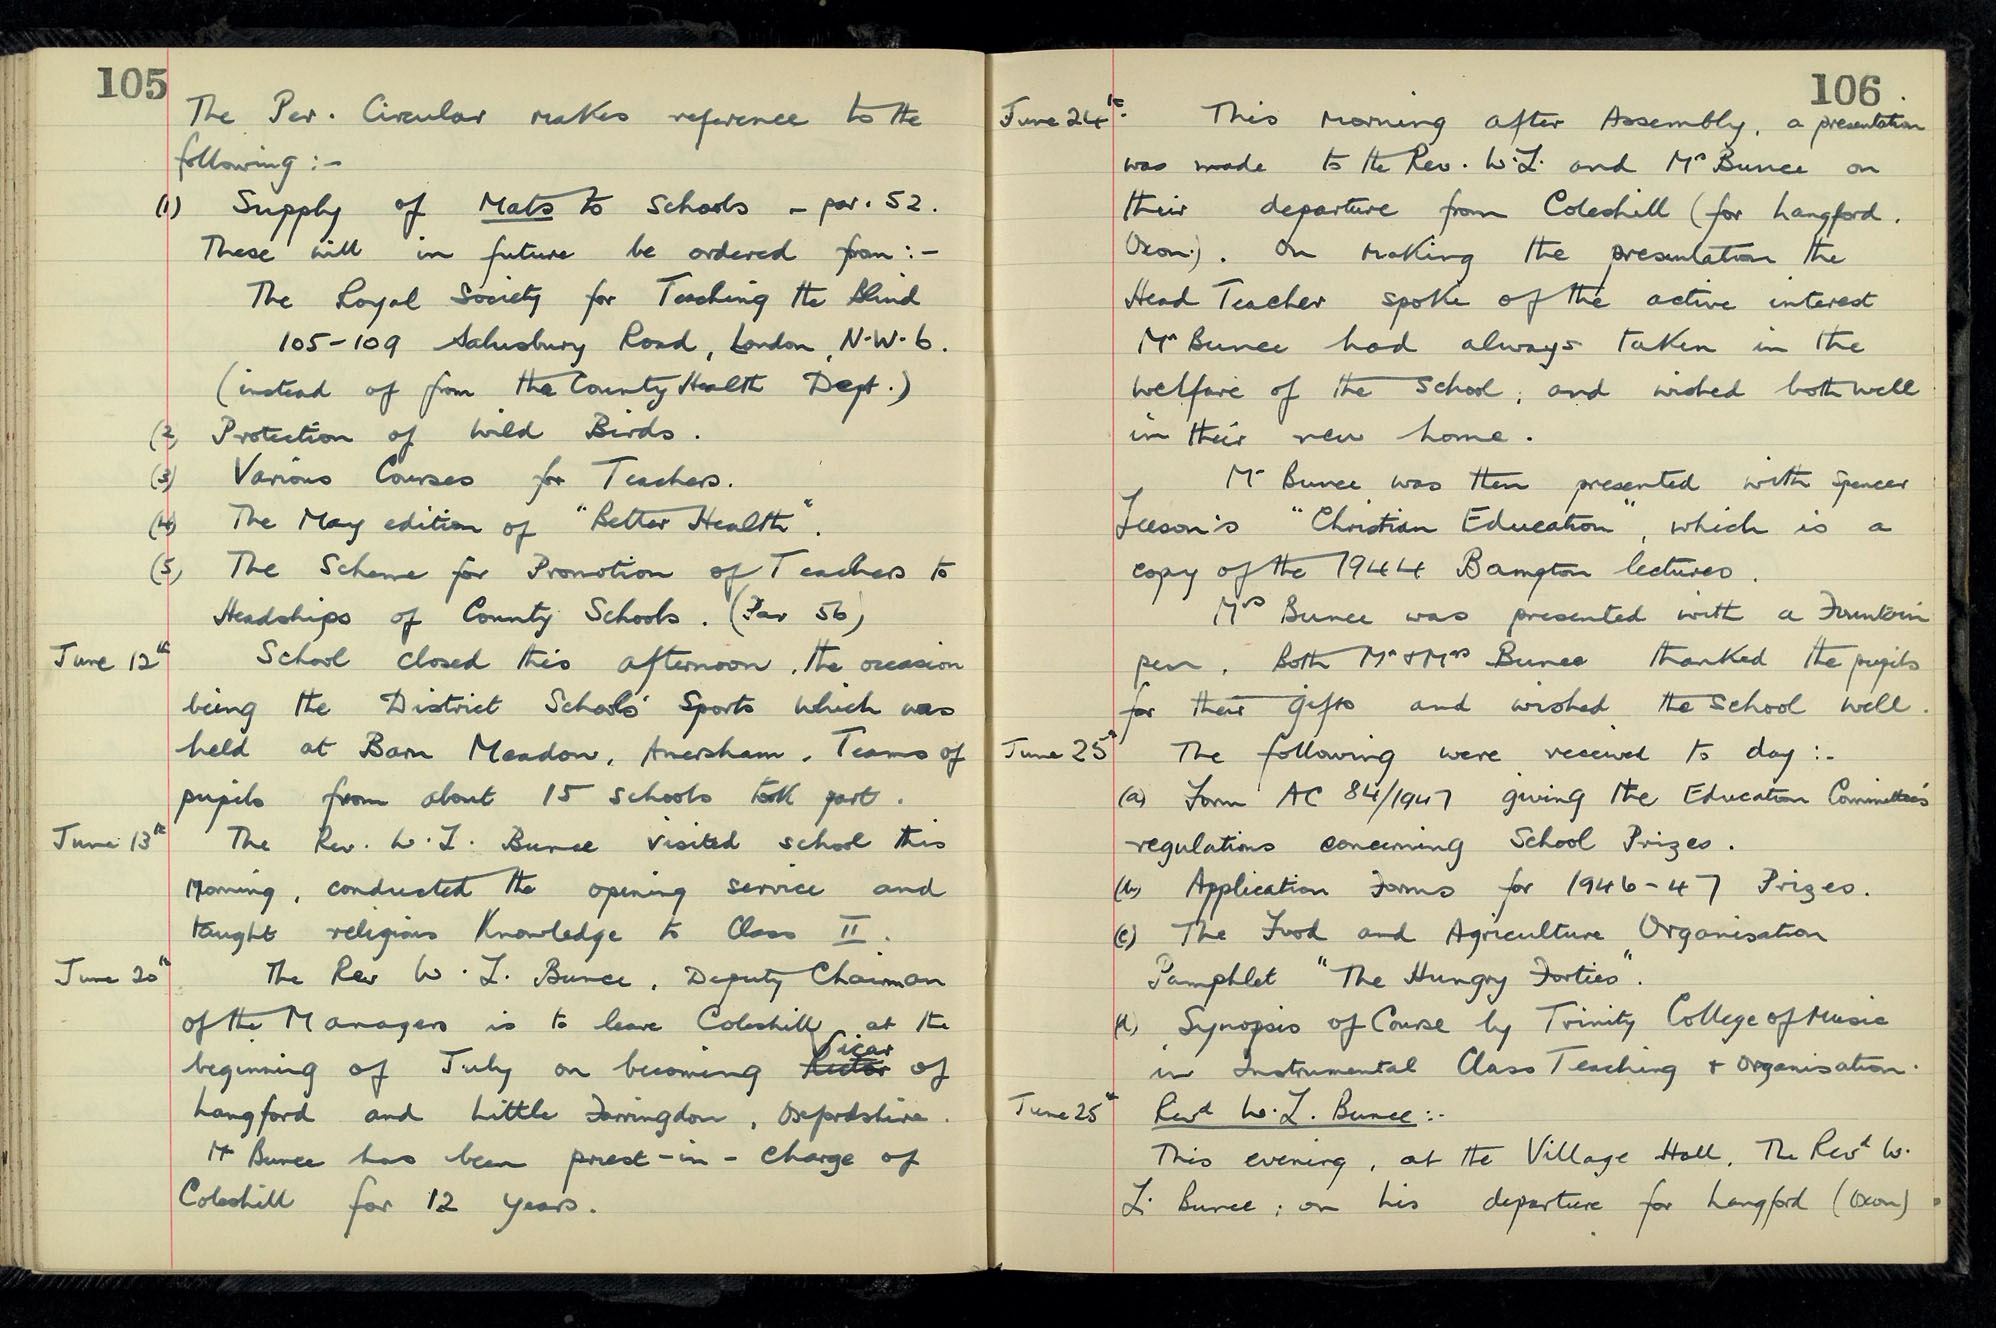 105
The Per. Circular makes reference to the
following :-
(1) Supply of Mats to Schools - par. 52.
These will in future be ordered from :-
The Royal Society for Teaching the Blind
105-109 Salusbury Road, London, N.W.6.
(instead of from the County Health Dept.)
(2) Protection of Wild Birds.
(3) Various Courses for Teachers.
(4) The May edition of "Better Health".
(5) The Scheme for Promotion of Teachers to
Headships of County Schools. (Par 56)
June 12th School closed this afternoon, the occasion
being the District Schools' Sports which was
held at Barn Meadow, Amersham. Teams of
pupils from about 15 schools took part.
June 13th The Rev. W.L. Bunce visited school this
morning, conducted the opening service and
taught religious Knowledge to Class II.
June 20th The Rev W.L. Bunce, Deputy Chairman
of the Managers is to leave Coleshill at the
Vicar
beginning of July on becoming Rector of
Langford and Little Farringdon, Oxfordshire.
Mr Bunce has been priest-in-charge of
Coleshill for 12 years.
106
June 24th This morning after Assembly, a presentation
was made to the Rev. W.L. and Mrs Bunce on
their departure from Coleshill (for Langford.
Oxon.). On making the presentation the
Head Teacher spoke of the active interest
Mr Bunce had always taken in the
welfare of the School, and wished both well
in their new home.
Mr Bunce was then presented with Spencer
Leeson's "Christian Education", which is a
copy of the 1944 Bampton lectures.
Mrs Bunce was presented with a Fountain
pen. Both Mr & Mrs Bunce thanked the pupils
for their gifts and wished the School well.
June 25th The following were received to day :-
(a) Form AC 84/1947 giving the Education Committee's
regulations concerning School Prizes.
(b) Application Forms for 1946-47 Prizes.
(c) The Food and Agriculture Organisation
Pamphlet "The Hungry Forties".
(d) Synopsis of Course by Trinity College of Music
in Instrumental Class Teaching & Organisation.
June 25th Revd W.L. Bunce :-
This evening, at the Village Hall, The Revd W.
L. Bunce, on his departure for Langford (Oxon)